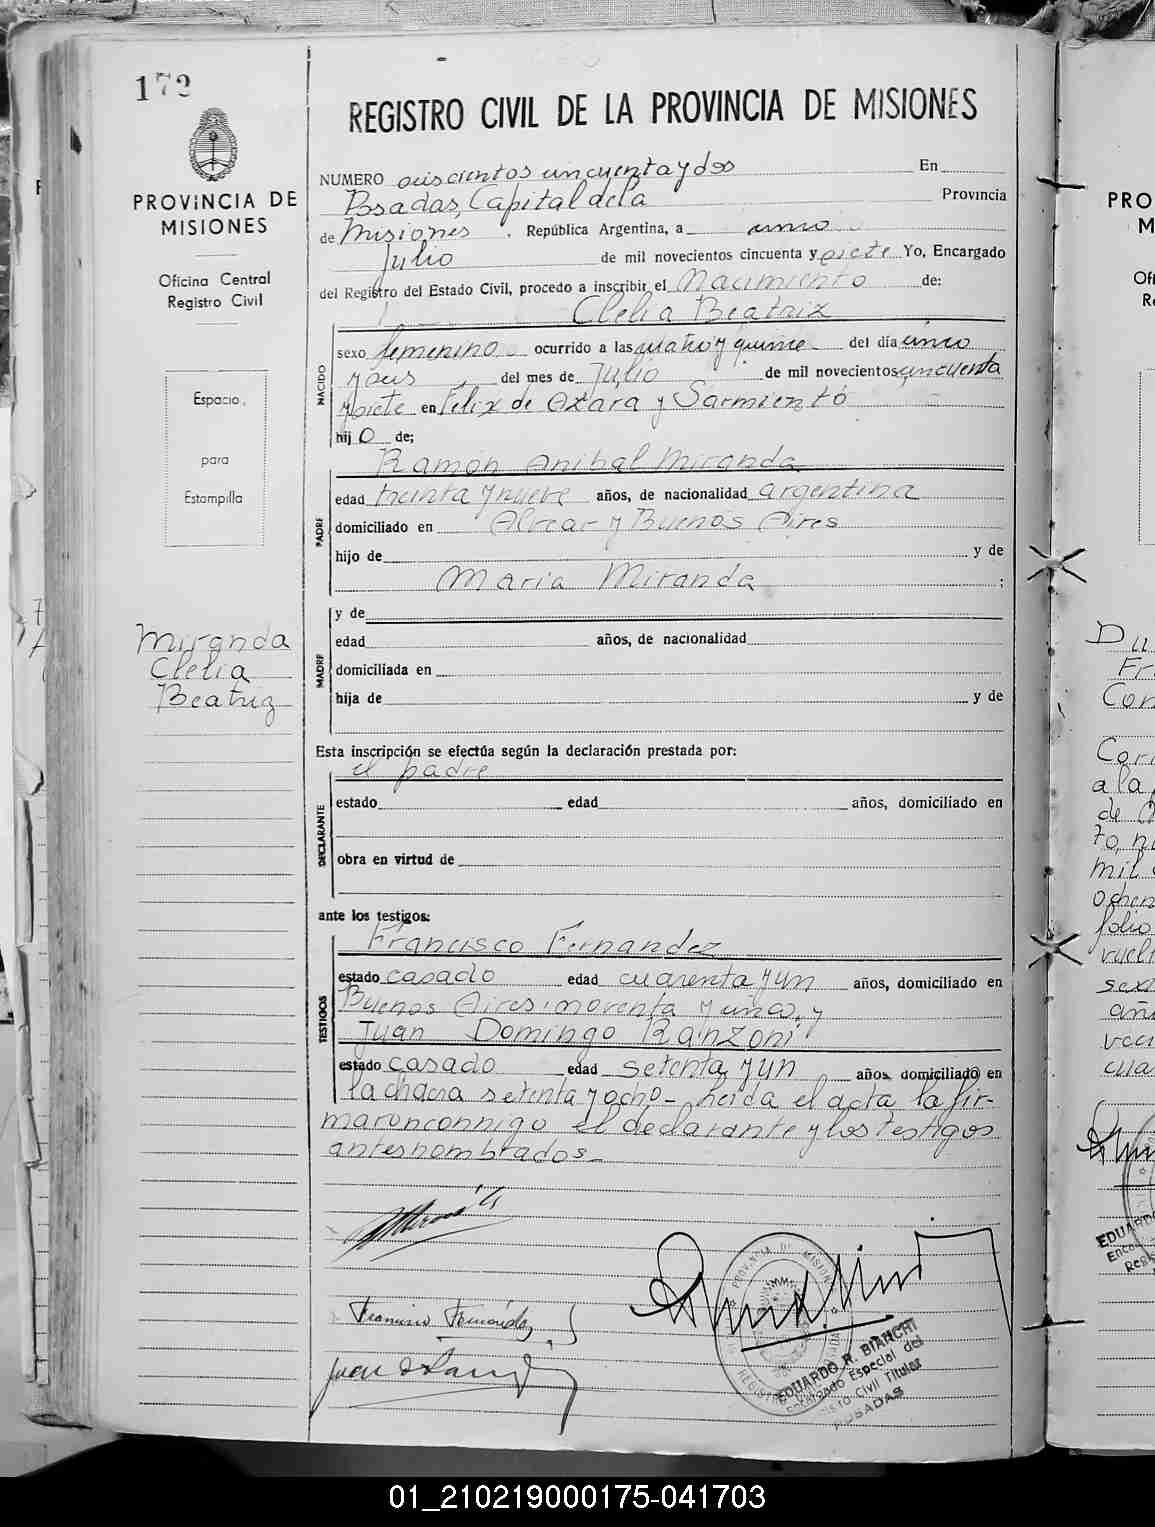 172
PROVINCIA DE
MISIONES
Oficina Central
Registro Civil
Espacio
para
Estampilla
Miranda
Clelia
Beatriz
REGISTRO CIVIL DE LA PROVINCIA DE MISIONES
NUMERO seiscientos cincuenta y dos En
Posadas, Capital de la Provincia
de Misiones , República Argentina, a
Julio de mil novecientos cincuenta y siete Yo, Encargado
del Registro del Estado Civil, procedo a inscribir el Nacimiento de:
Clelia Beatriz
NACIDO
sexo femenino ocurrido a las cuatro y quince del día cinco
del mes de Julio de mil novecientos cincuenta
y siete en Felix de Azara y Sarmiento
hij o de;
PADRE
Ramón Anibal Miranda
edad treinta y nueve años, de nacionalidad argentina
domiciliado en Alvear y Buenos Aires
hijo de y de
Maria Miranda ;
MADRE
y de
edad años, de nacionalidad
domiciliada en
hija de y de
Esta inscripción se efectúa según la declaración prestada por:
el padre
DECLARANTE
estado edad años, domiciliado en
obra en virtud de
ante los testigos:
TESTIGOS
Francisco Fernandez
estado casado edad cuarenta y un años, domiciliado en
Buenos Aires noventa y uno, y
Juan Domingo Ranzoni
estado casado edad setenta y un años, domiciliado en
la chacra setenta y ocho - Leida el acta la fir-
maron conmigo el declarante y los testigos
antes nombrados -
Francisco Fernández
PROVINCIA DE MISIONES
EDUARDO R. BIANCHI
Encargado Especial del
Registro Civil Titular
POSADAS
PRO
M
Ofi
Re
Du
Fr
Con
Corr
a la
de
to, nu
mil
ochen
folio
vuelt
sex
añ
veci
cua
EDUARDO
Enca
Regis
01_210219000175-041703